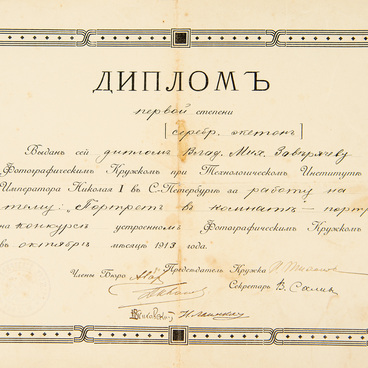 ДИПЛОМЪ
первой степени
[серебр. жетонъ]
Выданъ сей дипломъ Влад. Мих.
Фотографическимъ Кружкомъ при Технологическомъ Институтѣ
Императора Николая I въ С-Петербургѣ за работу на
тему: „Портретъ въ комнатѣ — портр
на конкурсѣ устроенномъ Фотографическимъ Кружкомъ
въ октябрѣ мѣсяцѣ 1913 года.
Предсѣдатель Кружка
Члены Бюро
Секретарь